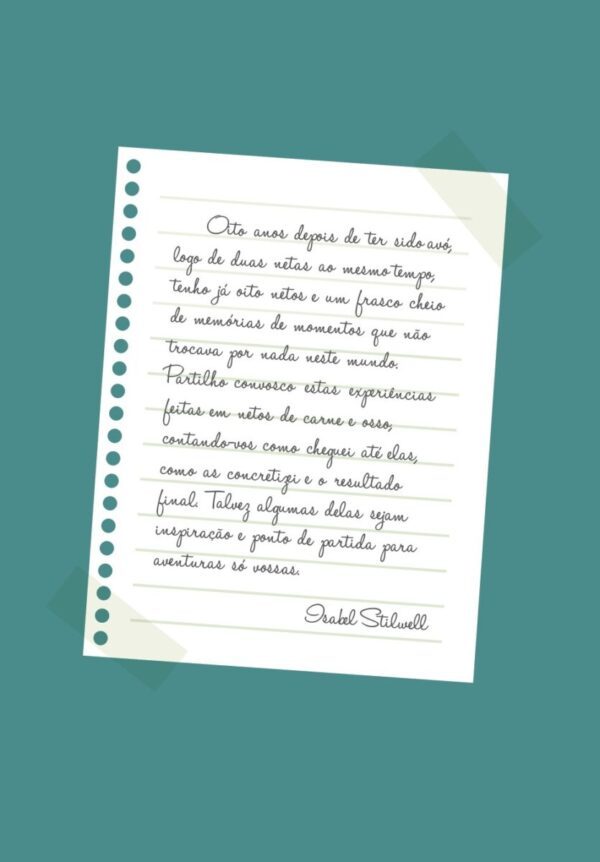 Oito anos depois de ter sido avó,
logo de duas netas ao mesmo tempo,
tenho já oito netos e um frasco cheio
de memórias de momentos que não
trocava por nada neste mundo.
Partilho convosco estas experiências
feitas em netos de carne e osso,
contando-vos como cheguei até elas,
como as concretizei e o resultado
final. Talvez algumas delas sejam
inspiração e ponto de partida para
aventuras só vossas.
Isabel Stilwell